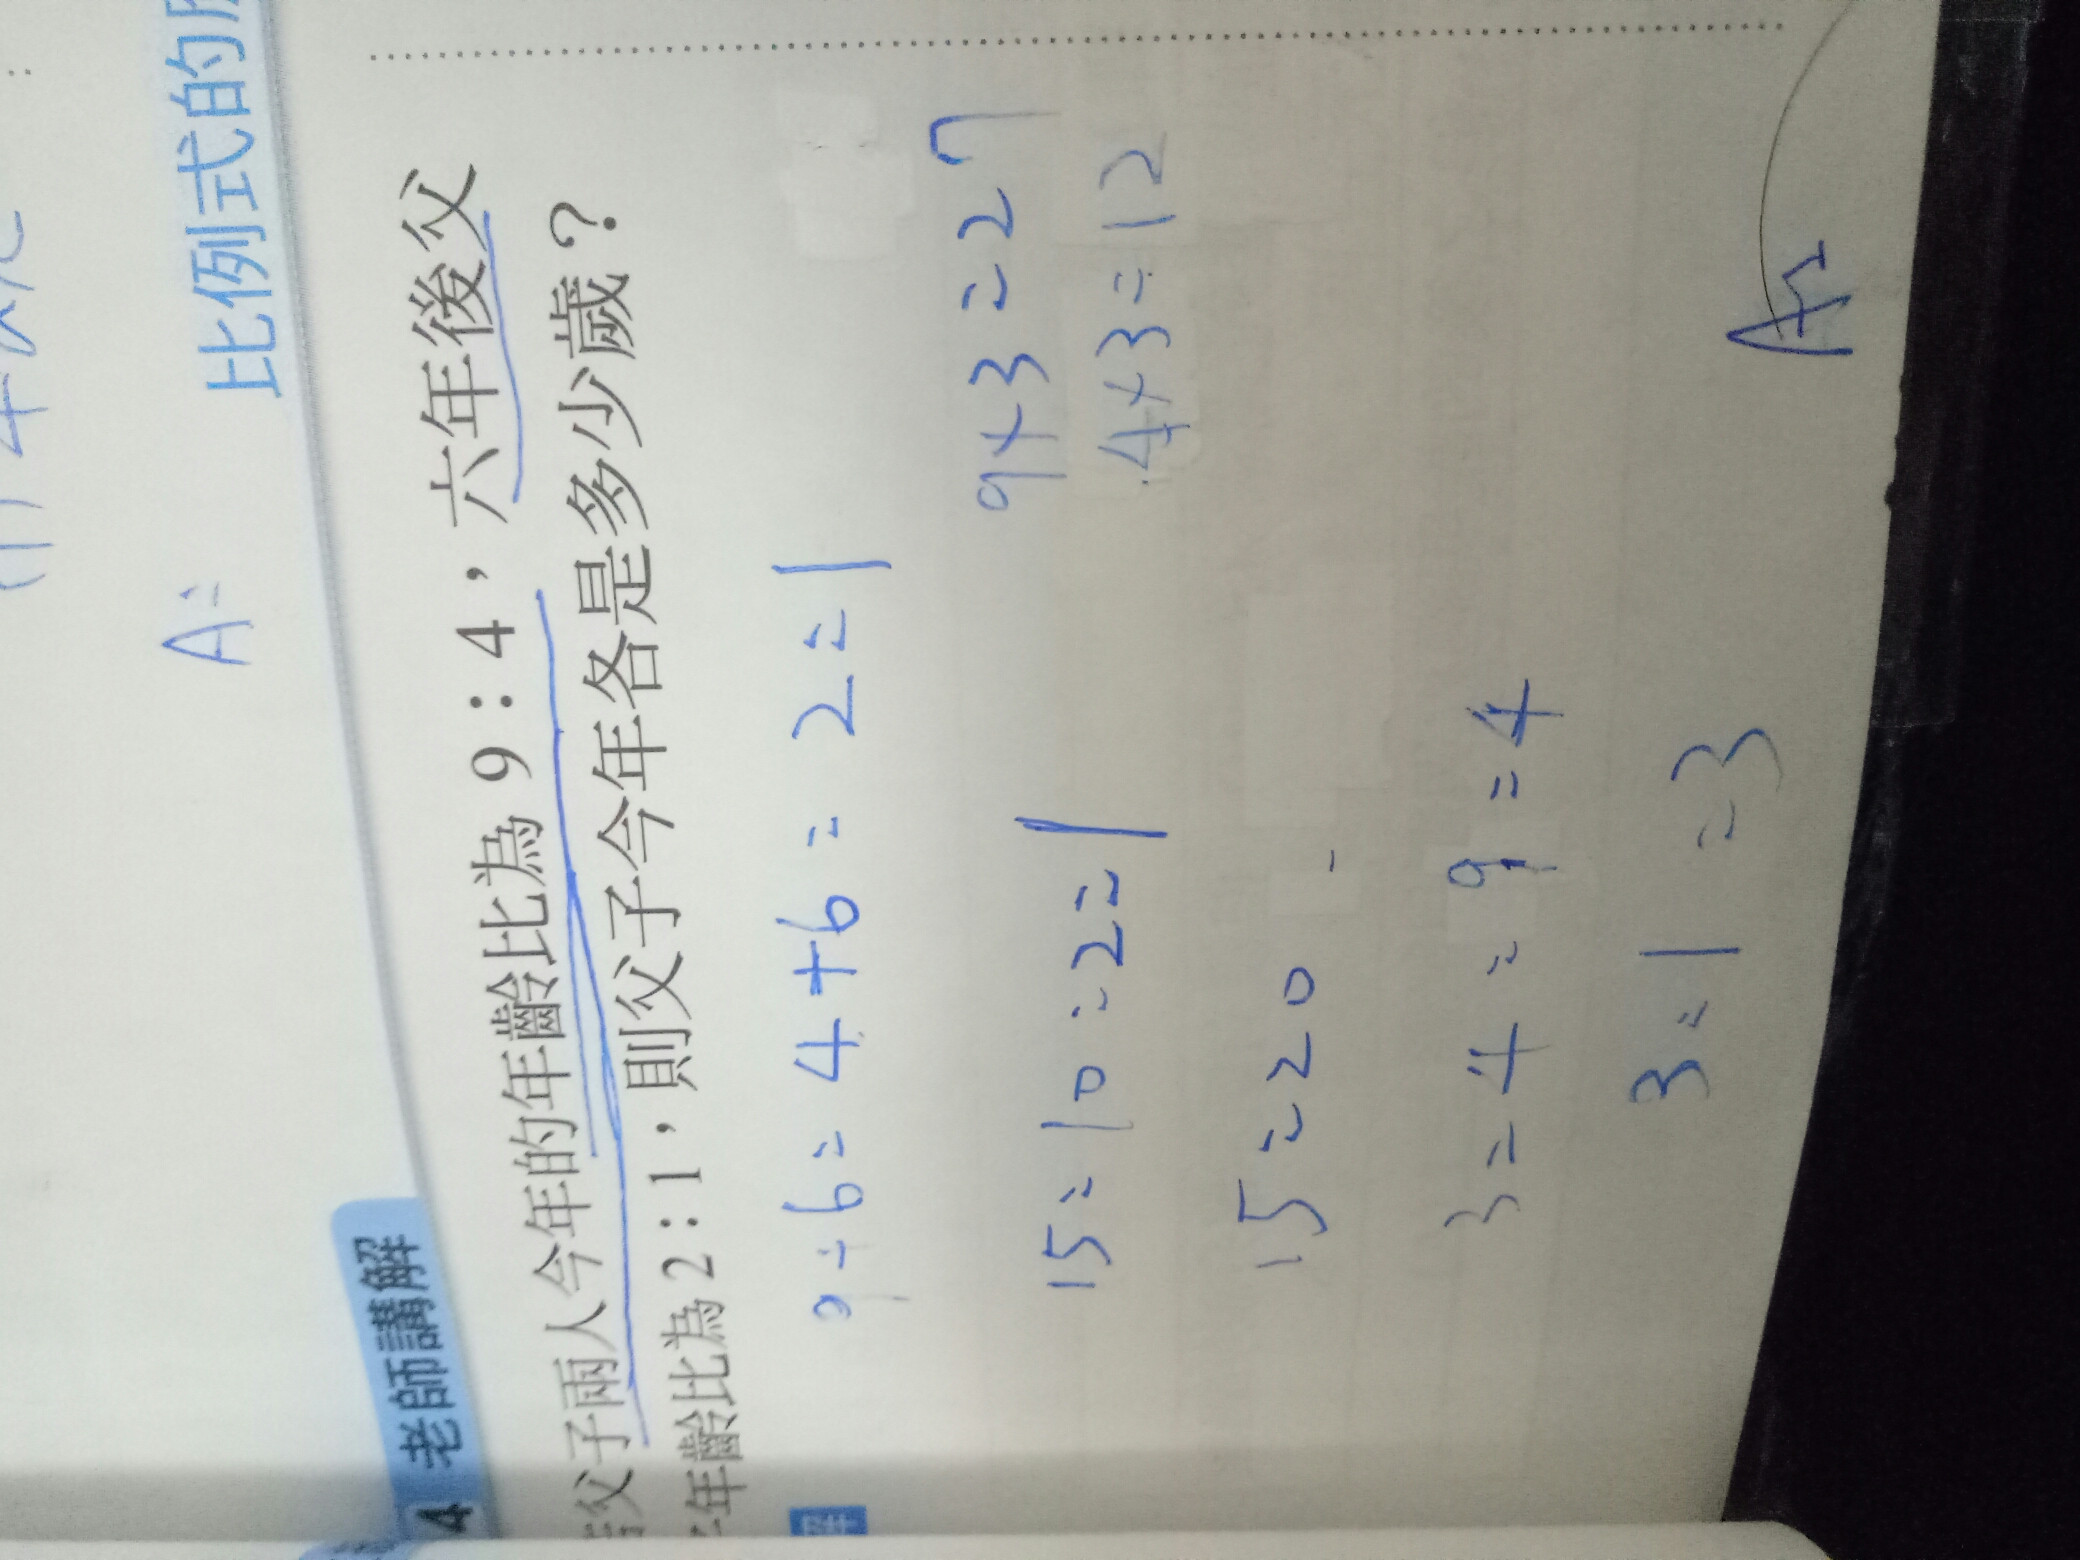 A=
比例式的
4 老師講解
父子兩人今年的年齡比為 9:4，六年後父
年齡比為 2:1，則父子今年各是多少歲？
解
9÷6=4+6=2=1
15=10=2=1
9×3=27
4×3=12
15=20
3=4=9=4
3=1=3
A